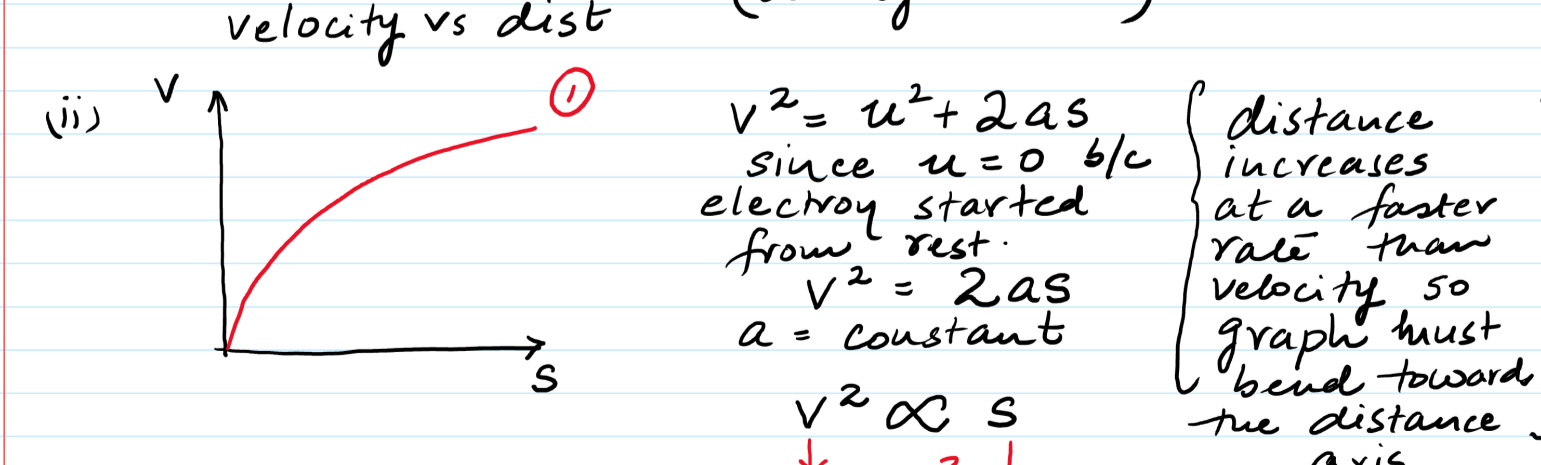 velocity vs dist
(ii)
V
①
S
v² = u² + 2as
since u = 0 b/c
electroy started
from rest.
v² = 2as
a = constant
v² ∝ s
distance
increases
at a faster
rate than
velocity so
graph must
bend towards
the distance
axis